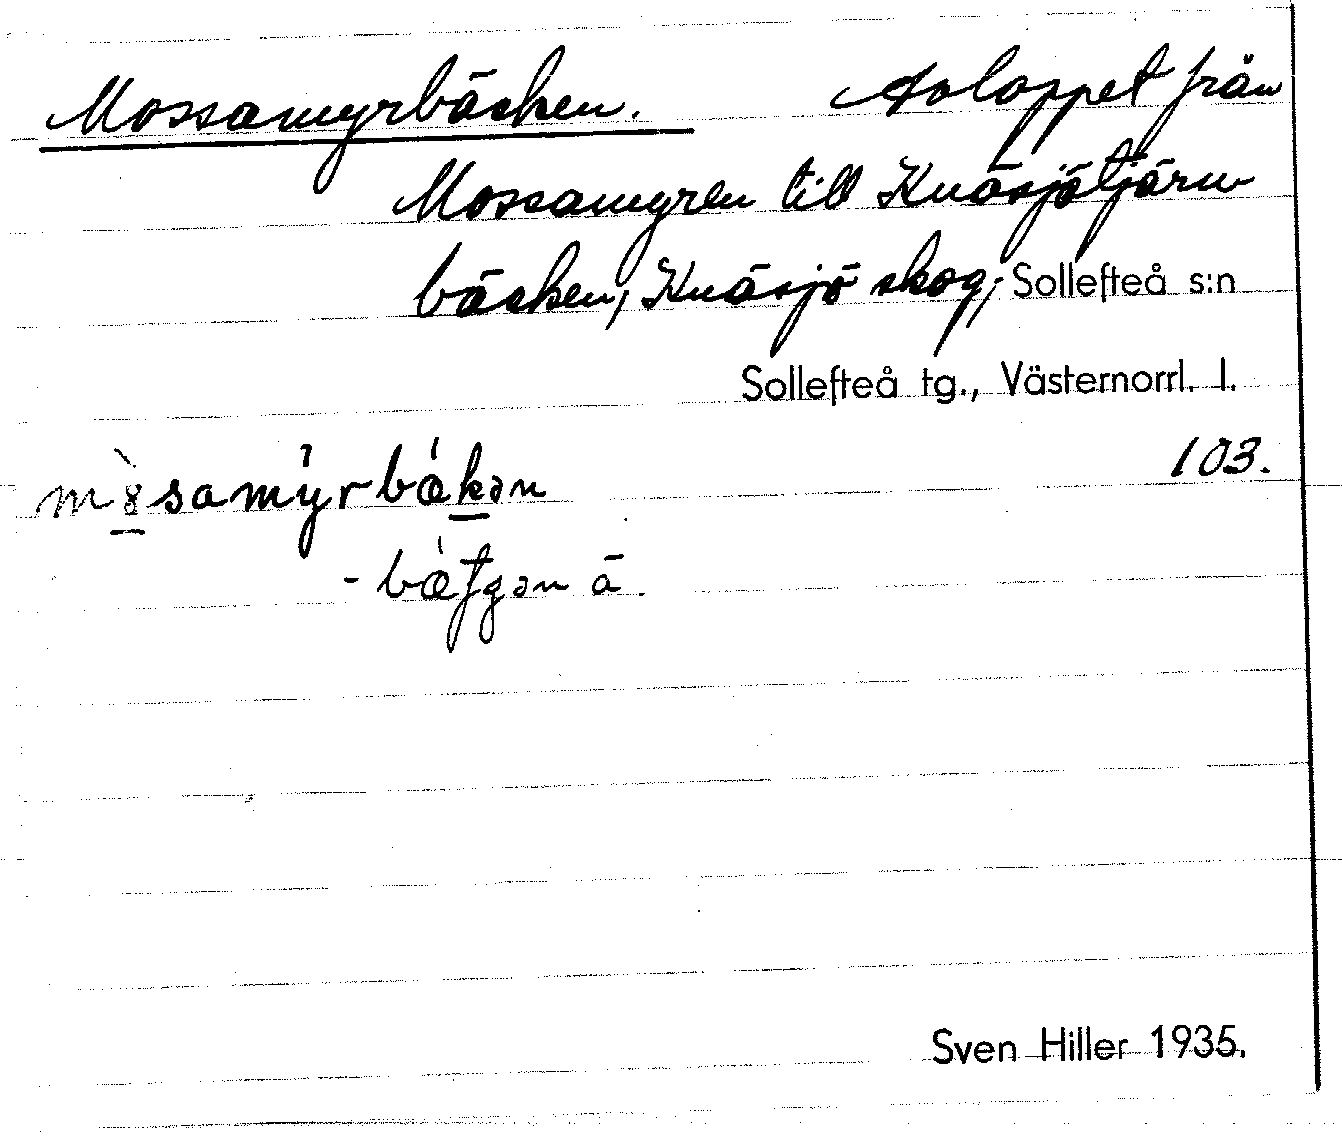 Mossamyrbäcken. Avloppet från
Mossamyren till Knäsjötjärn
bäcken, Knäsjö skog, Sollefteå s:n
Sollefteå tg., Västernorrl. l.
103.
Sven Hiller 1935.